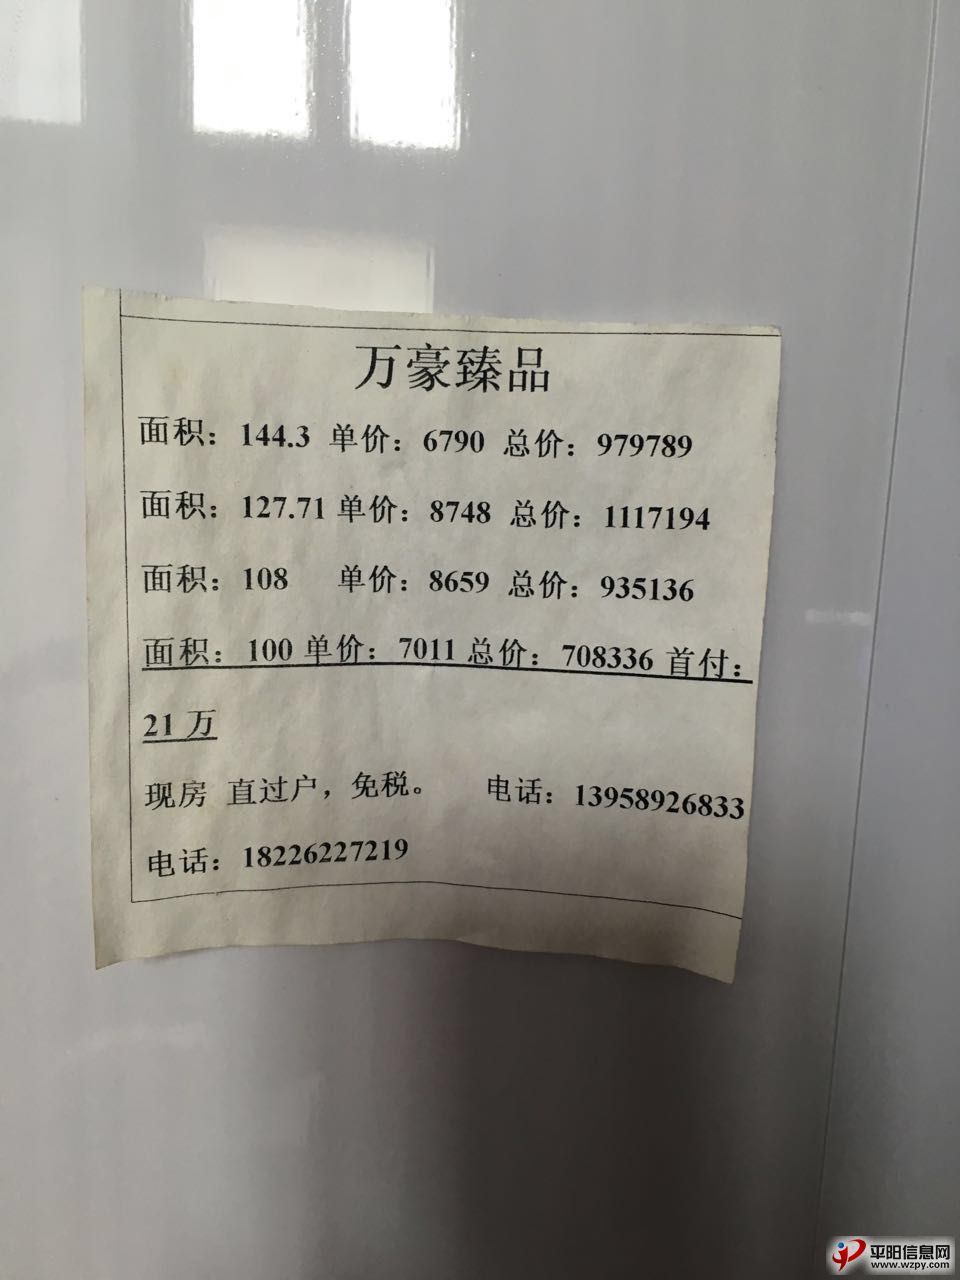 万豪臻品
面积：144.3 单价：6790 总价：979789
面积：127.71 单价：8748 总价：1117194
面积：108 单价：8659 总价：935136
面积：100 单价：7011 总价：708336 首付：
21 万
现房 直过户，免税。 电话：13958926833
电话：18226227219
平阳信息网
www.wzpy.com